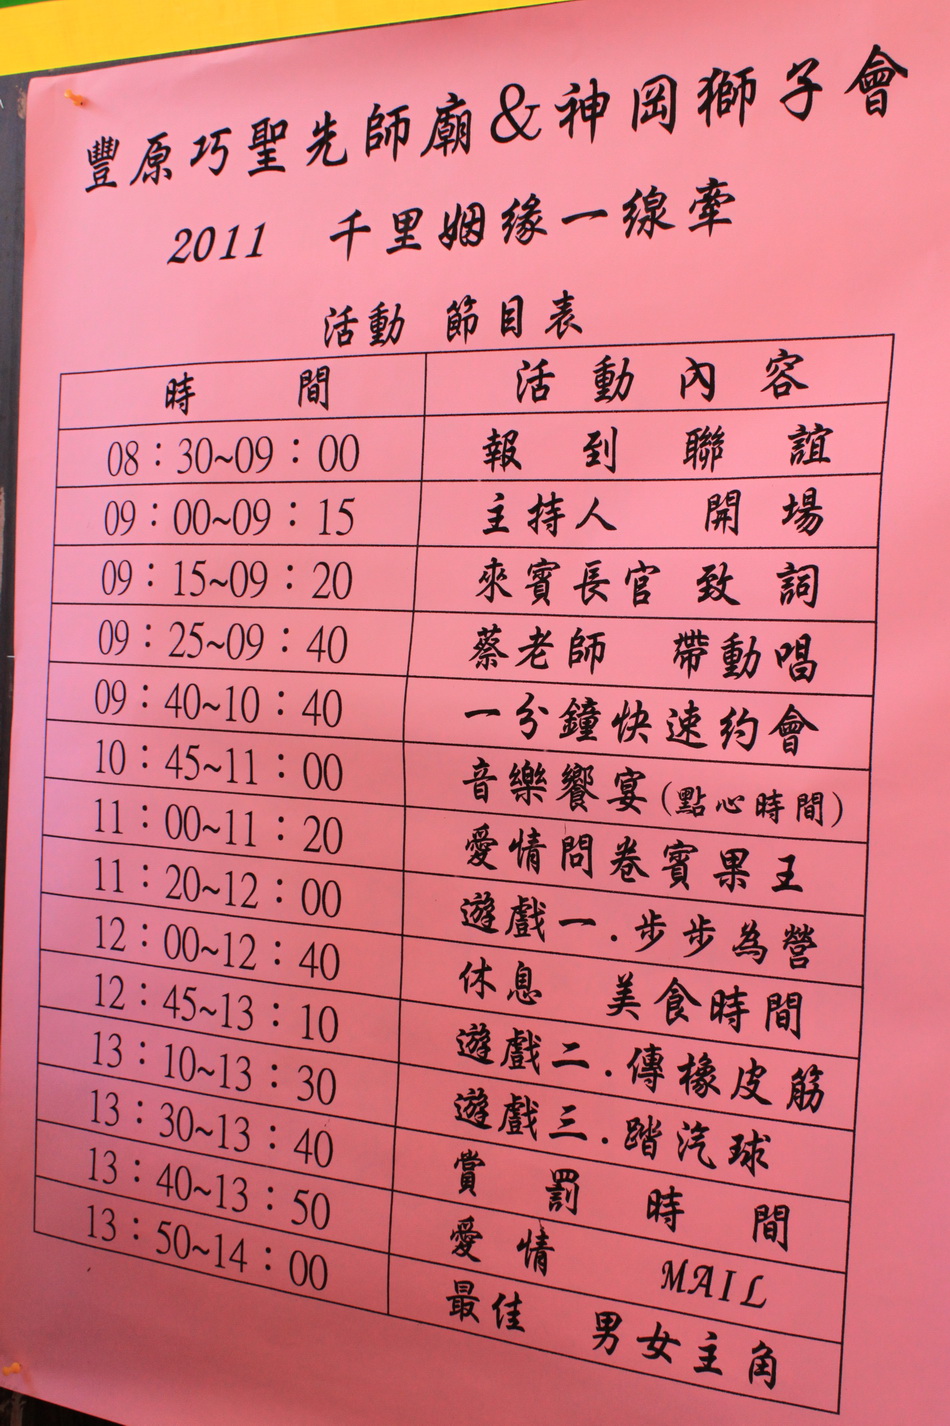 豐原巧聖先師廟&神岡獅子會
2011 千里姻緣一線牽
活動 節目表
時 間 活動內容
08：30~09：00 報到聯誼
09：00~09：15 主持人 開場
09：15~09：20 來賓長官 致詞
09：25~09：40 蔡老師 帶動唱
09：40~10：40 一分鐘快速約會
10：45~11：00 音樂饗宴(點心時間)
11：00~11：20 愛情問卷賓果王
11：20~12：00 遊戲一.步步為營
12：00~12：40 休息 美食時間
12：45~13：10 遊戲二.傳橡皮筋
13：10~13：30 遊戲三.踏汽球
13：30~13：40 賞罰時間
13：40~13：50 愛情 MAIL
13：50~14：00 最佳 男女主角